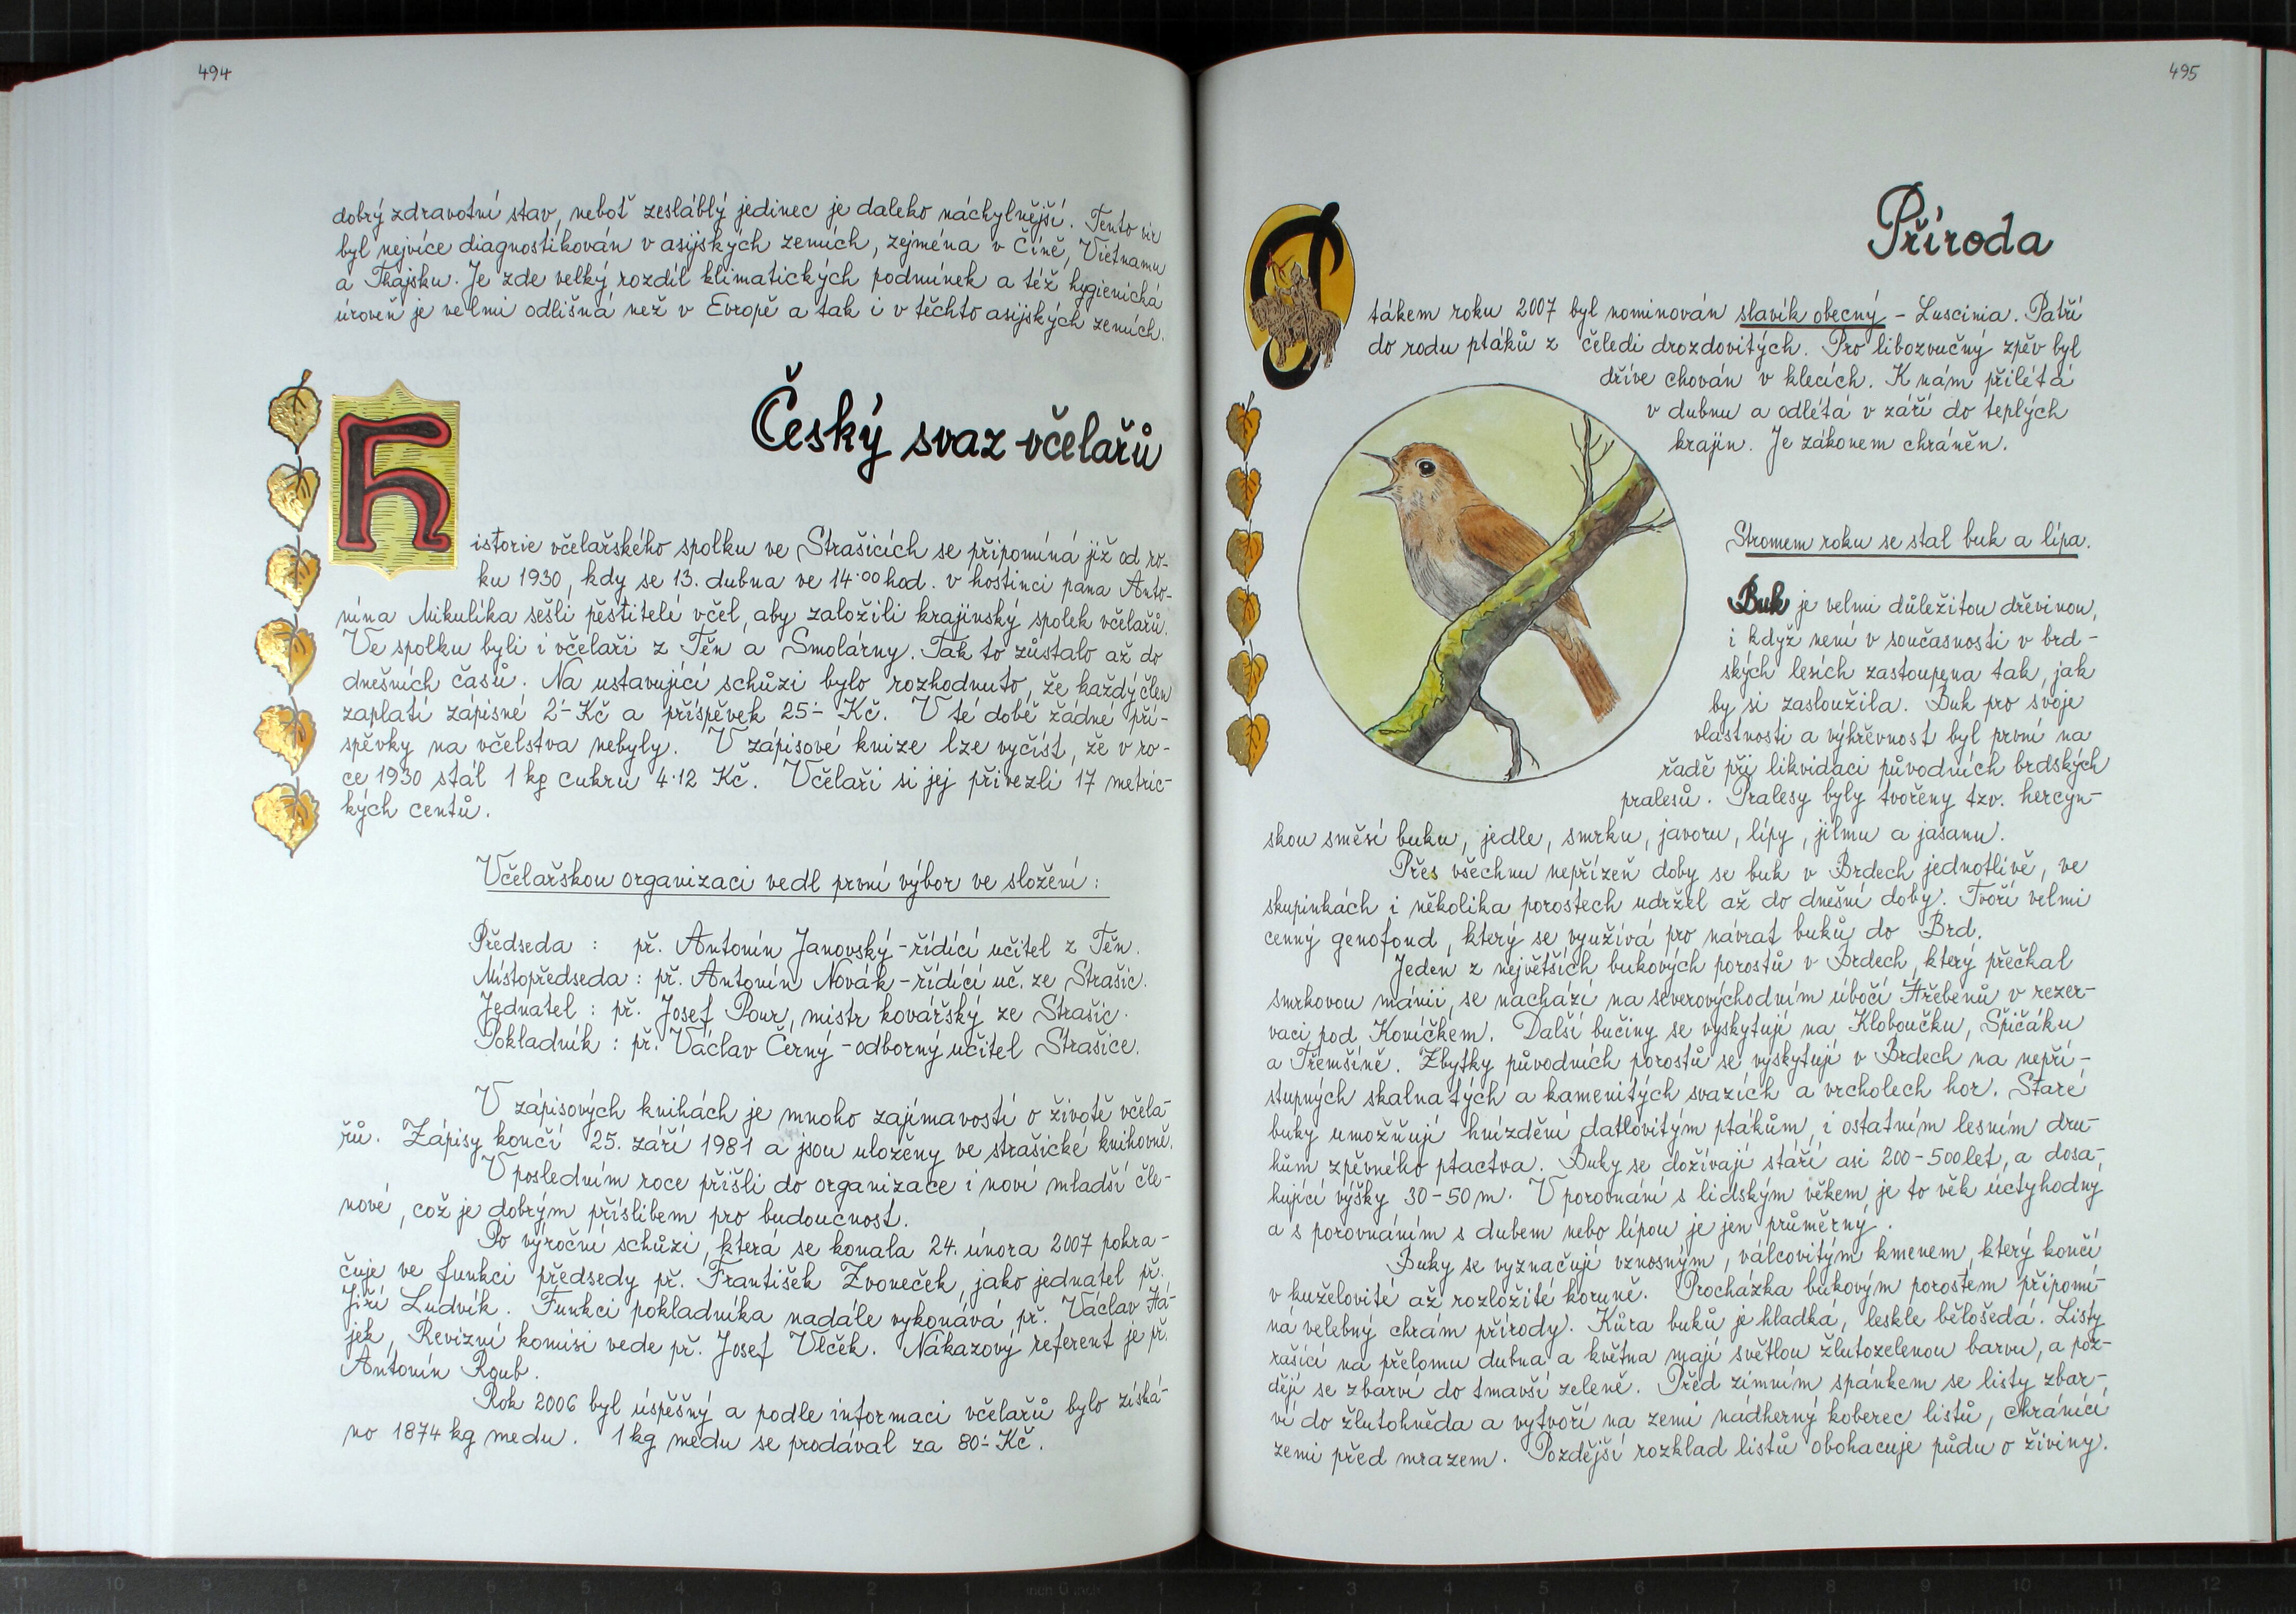 494
dobrý zdravotní stav, neboť zesláblý jedinec je daleko náchylnější. Tento vir
byl nejvíce diagnostikován v asijských zemích, zejména v Číně, Vietnamu
a Thajsku. Je zde velký rozdíl klimatických podmínek a též hygienická
úroveň je velmi odlišná než v Evropě a tak i v těchto asijských zemích.
Český svaz včelařů
Historie včelařského spolku ve Strašicích se připomíná již od ro-
ku 1930, kdy se 13. dubna ve 14.00 hod. v hostinci pana Anto-
nína Mikulíka sešli pěstitelé včel, aby založili krajinský spolek včelařů.
Ve spolku byli i včelaři z Těn a Smolárny. Tak to zůstalo až do
dnešních časů. Na ustavující schůzi bylo rozhodnuto, že každý člen
zaplatí zápisné 2.- Kč a příspěvek 25.- Kč. V té době žádné pří-
spěvky na včelstva nebyly. V zápisové knize lze vyčíst, že v ro-
ce 1930 stál 1 kg cukru 4.12 Kč. Včelaři si jej přivezli 17 metric-
kých centů.
Včelařskou organizaci vedl první výbor ve složení:
Předseda : př. Antonín Janovský - řídící učitel z Těn.
Místopředseda : př. Antonín Novák - řídící uč. ze Strašic.
Jednatel : př. Josef Pour, mistr kovářský ze Strašic.
Pokladník : př. Václav Černý - odborný učitel Strašice.
V zápisových knihách je mnoho zajímavostí o životě včela-
řů. Zápisy končí 25. září 1981 a jsou uloženy ve strašické knihovně.
V posledním roce přišli do organizace i noví mladší čle-
nové, což je dobrým příslibem pro budoucnost.
Po výroční schůzi, která se konala 24. února 2007 pokra-
čuje ve funkci předsedy př. František Zvoneček, jako jednatel př.
Jiří Ludvík. Funkci pokladníka nadále vykonává př. Václav Há-
jek, Revizní komisi vede př. Josef Vlček. Nákazový referent je př.
Antonín Roub.
Rok 2006 byl úspěšný a podle informací včelařů bylo získá-
no 1874 kg medu. 1 kg medu se prodával za 80.- Kč.
495
Příroda
Ptákem roku 2007 byl nominován slavík obecný - Luscinia. Patří
do rodu ptáků z čeledi drozdovitých. Pro libozvučný zpěv byl
dříve chován v klecích. K nám přilétá
v dubnu a odlétá v září do teplých
krajin. Je zákonem chráněn.
Stromem roku se stal buk a lípa.
Buk je velmi důležitou dřevinou,
i když není v současnosti v brd-
ských lesích zastoupena tak, jak
by si zasloužila. Buk pro svoje
vlastnosti a výhřevnost byl první na
řadě při likvidaci původních brdských
pralesů. Pralesy byly tvořeny tzv. hercyn-
skou směsí buku, jedle, smrku, javoru, lípy, jilmu a jasanu.
Přes všechnu nepřízeň doby se buk v Brdech jednotlivě, ve
skupinkách i několika porostech udržel až do dnešní doby. Tvoří velmi
cenný genofond, který se využívá pro návrat buků do Brd.
Jeden z největších bukových porostů v Brdech, který přečkal
smrkovou mánii, se nachází na severovýchodním úbočí Hřebenů v rezer-
vaci pod Koníčkem. Další bučiny se vyskytují na Kloboučku, Špičáku
a Třemšíně. Zbytky původních porostů se vyskytují v Brdech na nepří-
stupných skalnatých a kamenitých svazích a vrcholech hor. Staré
buky umožňují hnízdění datlovitým ptákům, i ostatním lesním dru-
hům zpěvného ptactva. Buky se dožívají stáří asi 200 - 500 let, a dosa-
hující výšky 30 - 50 m. V porovnání s lidským věkem je to věk úctyhodný
a s porovnáním s dubem nebo lípou je jen průměrný.
Buky se vyznačují vznosným, válcovitým kmenem, který končí
v kuželovité až rozložité koruně. Procházka bukovým porostem připomí-
ná velebný chrám přírody. Kůra buků je hladká, leskle bělošedá. Listy
rašící na přelomu dubna a května mají světlou žlutozelenou barvu, a poz-
ději se zbarví do tmavší zeleně. Před zimním spánkem se listy zbar-
ví do žlutohněda a vytvoří na zemi nádherný koberec listů, chránící
zemi před mrazem. Pozdější rozklad listů obohacuje půdu o živiny.
11 10 9 8 7 6 5 4 3 2 1 inch 0 inch 1 2 3 4 5 6 7 8 9 10 11 12